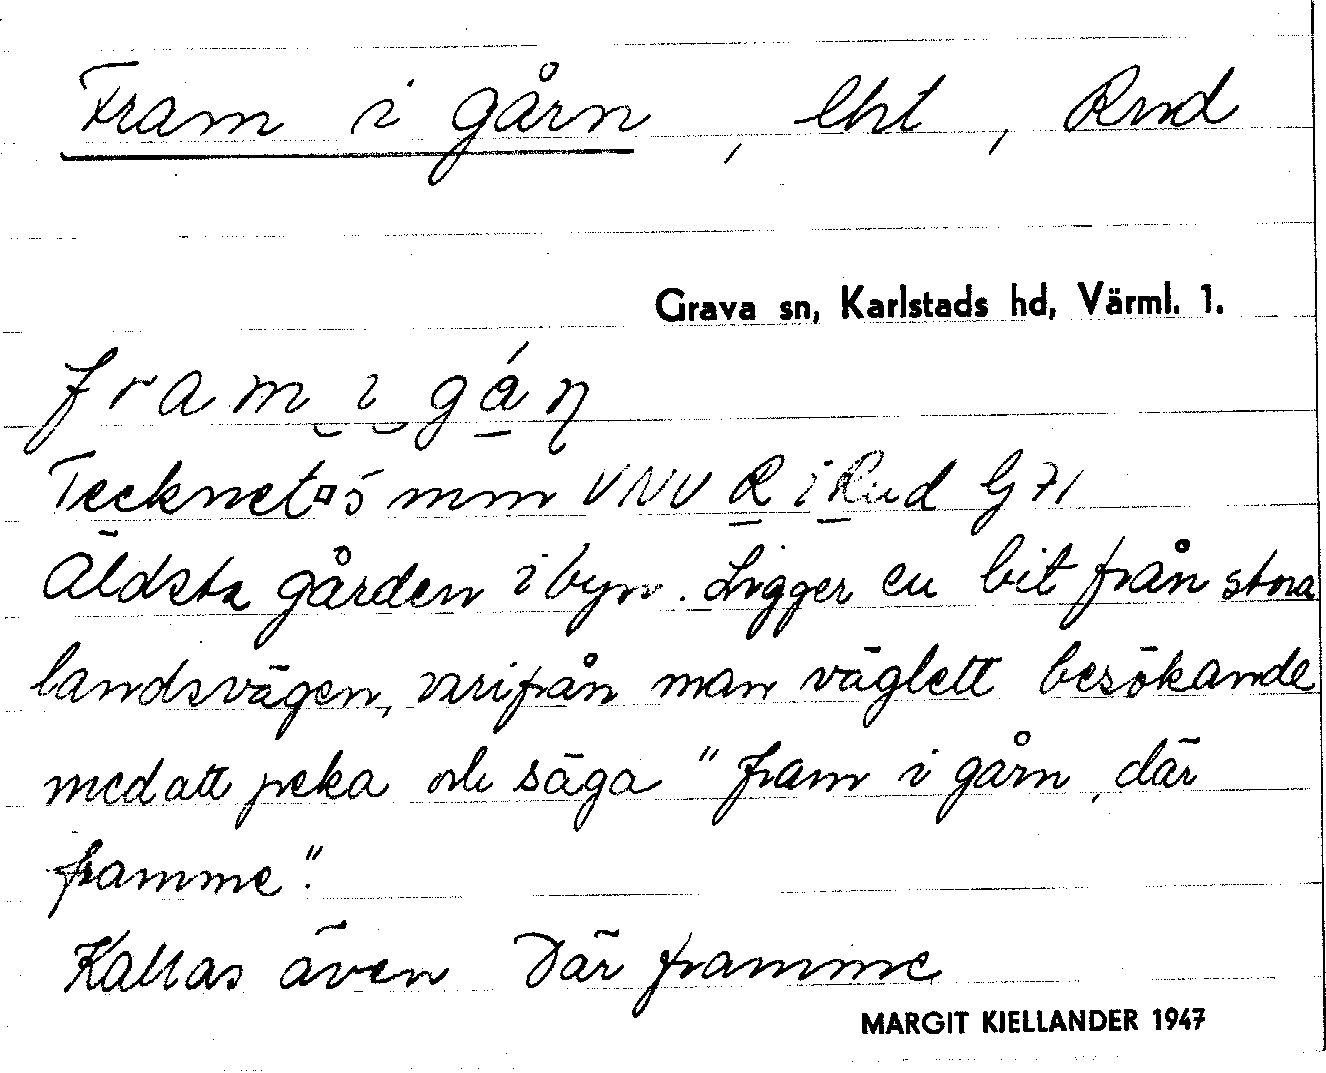 Fram i gårn, lht, Rud
Grava sn, Karlstads hd, Värml. 1.
fram i gá̱ɳ
Tecknet ¤ 5 mm VNV R i Rud G 71
Äldsta gården i byn. Ligger en bit från stora
landsvägen, varifrån man väglett besökande
med att peka och säga "fram i gårn, där
framme".
Kallas även Där framme
MARGIT KJELLANDER 1947